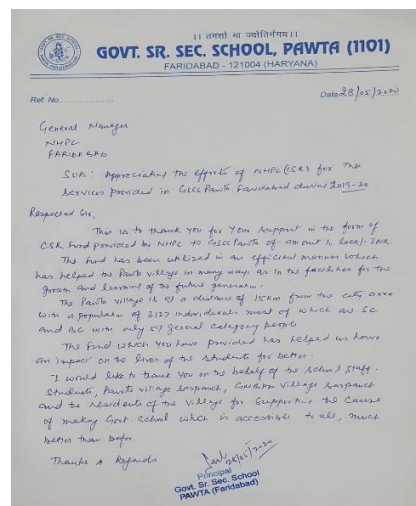 ।। तमसो मा ज्योतिर्गमय।।
GOVT. SR. SEC. SCHOOL, PAWTA (1101)
FARIDABAD - 121004 (HARYANA)
Ref. No.................... Date 28/05/2020
General Manager
NHPC
FARIDABAD
SUB: Appreciating the efforts of NHPC (CSR) for the
Services provided in GSSS Pawta, Faridabad during 2019-20
Respected Sir,
This is to thank you for Your Support in the form of
CSR Fund provided by NHPC to GSSS Pawta of amount
The fund has been utilized in an efficient manner which
has helped the Pawta village in many ways as in the facilities for the
growth and learning of the future generation.
The Pawta village is at a distance of 15km from the city area
with a population of 3127 individuals most of which are SC
and BC with only 51 general category people
The Fund which you have provided has helped us have
an impact on the lives of the students for better.
I would like to thank you on the behalf of the school staff,
Students, Pawta village Sarpanch, village Sarpanch
and the residents of the village for Supporting the Cause
of making Govt. School which is accessible to all, much
better than before
Thanks & Regards
28/05/2020
Principal
Govt. Sr. Sec. School
PAWTA (Faridabad)